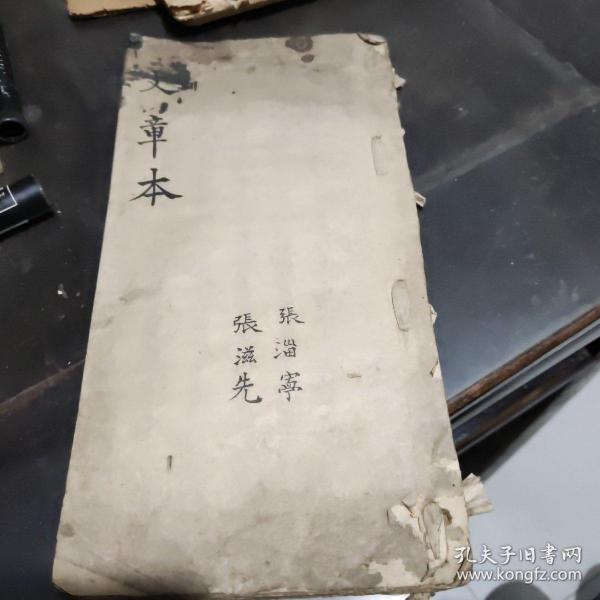 文章本
張淄寧
張滋先
孔夫子旧書网
www.kongfz.com